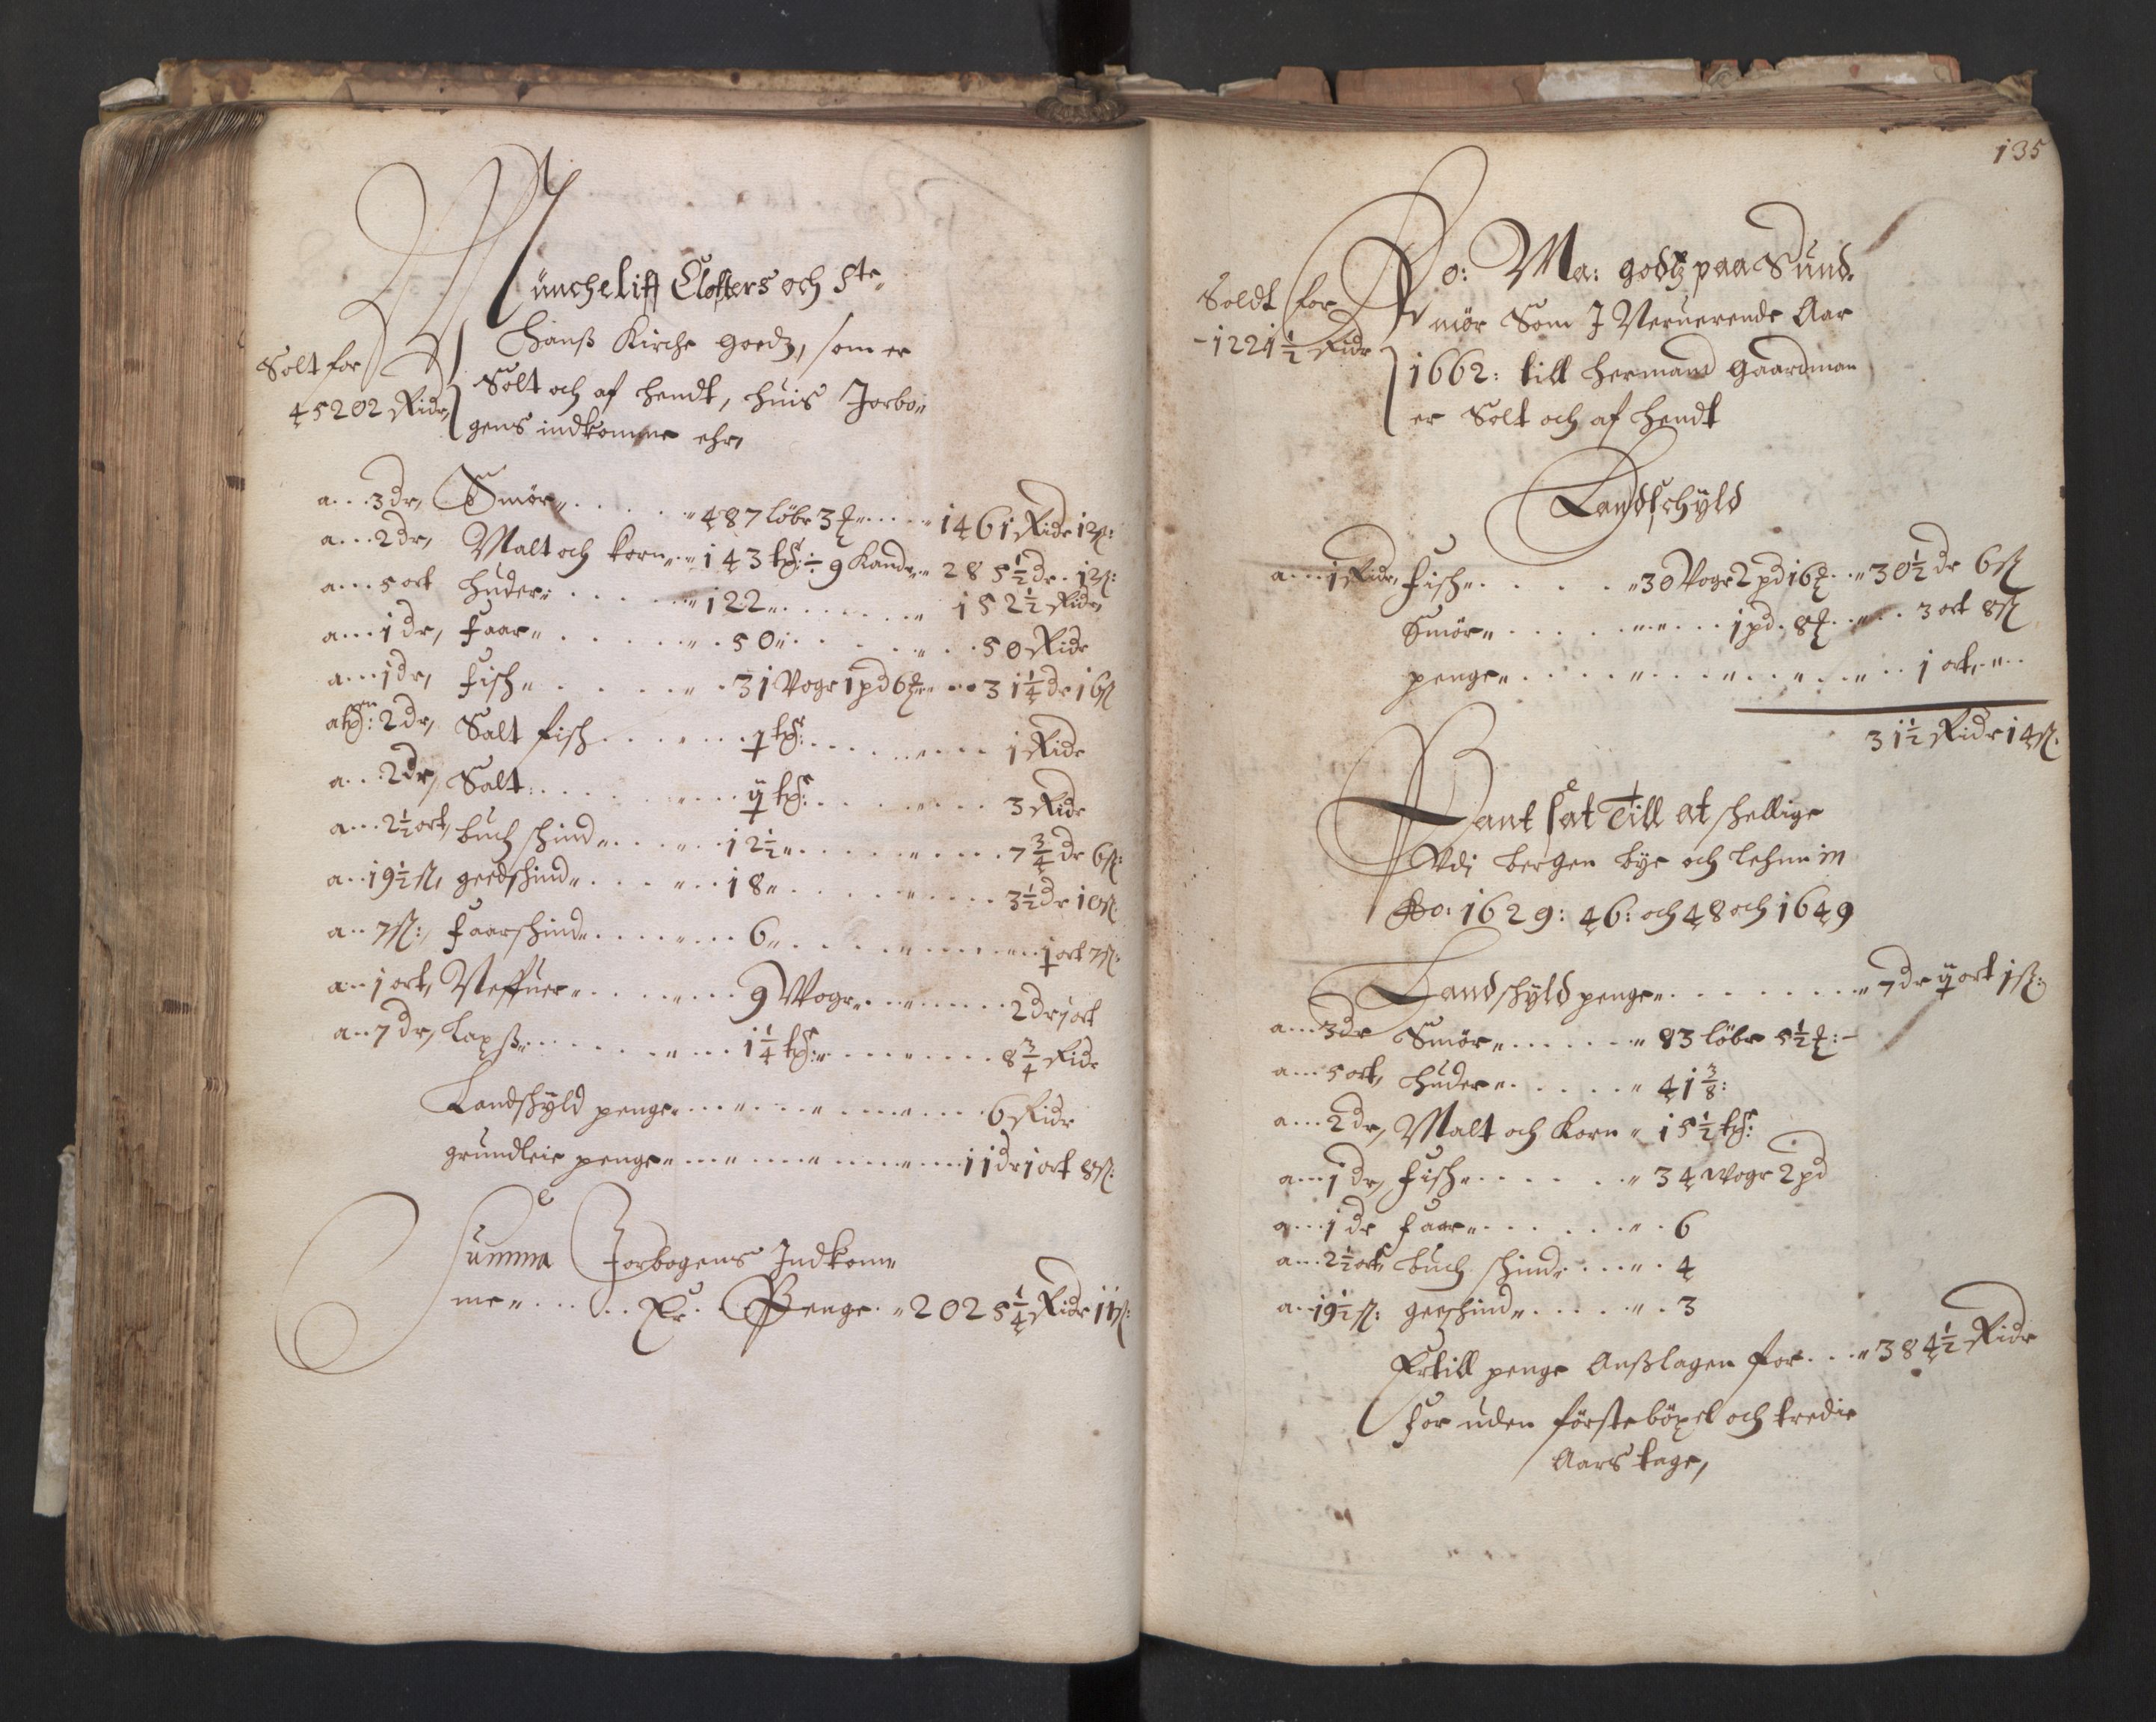 Münchelifs Closters och Ste
Hanß Kirche goedz, som er
Solt for
Solt och af hendt, huis Jorbo-
45202 Ridr,
gens indkomme ehr,
a...3 dr, Smør 487 løbr 3 ℔ 1461 Ridr 12 ß:
a...2 dr, Malt och korn 143 tþr: ÷ 9 Kandr 285½ dr. 12 ß:
a...5 ort Huder 122 152½ Ridr
a...1 dr, Faar 50 50 Ridr
a...1 dr, Fisch 31 Vogr 1 pd 6 ℔ 31¼ dr 16 ß
a tþn: 2 dr, Salt fisch ½ tþr: 1 Ridr
a...2 dr, Salt 1½ tþr: 3 Ridr
a...2½ ort, buch schind 12½ 7¾ dr 6 ß:
a..19½ ß, geedschind 18 3½ dr 10 ß
a..7 ß:, Faarschind 6 1½ ort 7 ß:
a..1 ort, Neffuer 9 Vogr 2 dr 1 ort
a..7 dr, Lax 1¼ tþr: 8¾ Ridr
Landschyld penge 6 Ridr
grundleie penge 11 dr 1 ort 8 ß:
Summa Jorbogens Indkom-
me Er Penge 2025¼ Ridr 11 ß:
135
Ko: Ma: godtz paa Sund-
Soldt for
mör Som J Neruerende Aar
-1221½ Ridr
1662: till Hermand Gaardman
er Solt och af hendt
Landschyld
a...1 Ridr, Fisch 30 Vogr 2 pd 16 ℔ 30½ dr 6 ß
Smør 1 pd. 8 ℔ 3 ort 8 ß
penge 1 ort
31½ Ridr 14 ß.
Pant sat Till at schellige
Vdj bergen bye och lehn in
Ao: 1629: 46: och 48 och 1649
Landschyld penge 7 dr 1½ ort 1 ß:
a...3 dr Smør 83 løbr 5½ ℔:
a...5 ort, Huder 41⅜:
a...2 dr, Malt och Korn 15½ tþr:
a...1 dr, Fisch 34 Wogr 2 pd
a...1 dr Faar 6
a...2½ ort buch schind 4
a..19½ ß: geeschind 3
Ertill penge Anßlagen for 384½ Ridr
For uden förstebøxel och tredie
Aars tage,